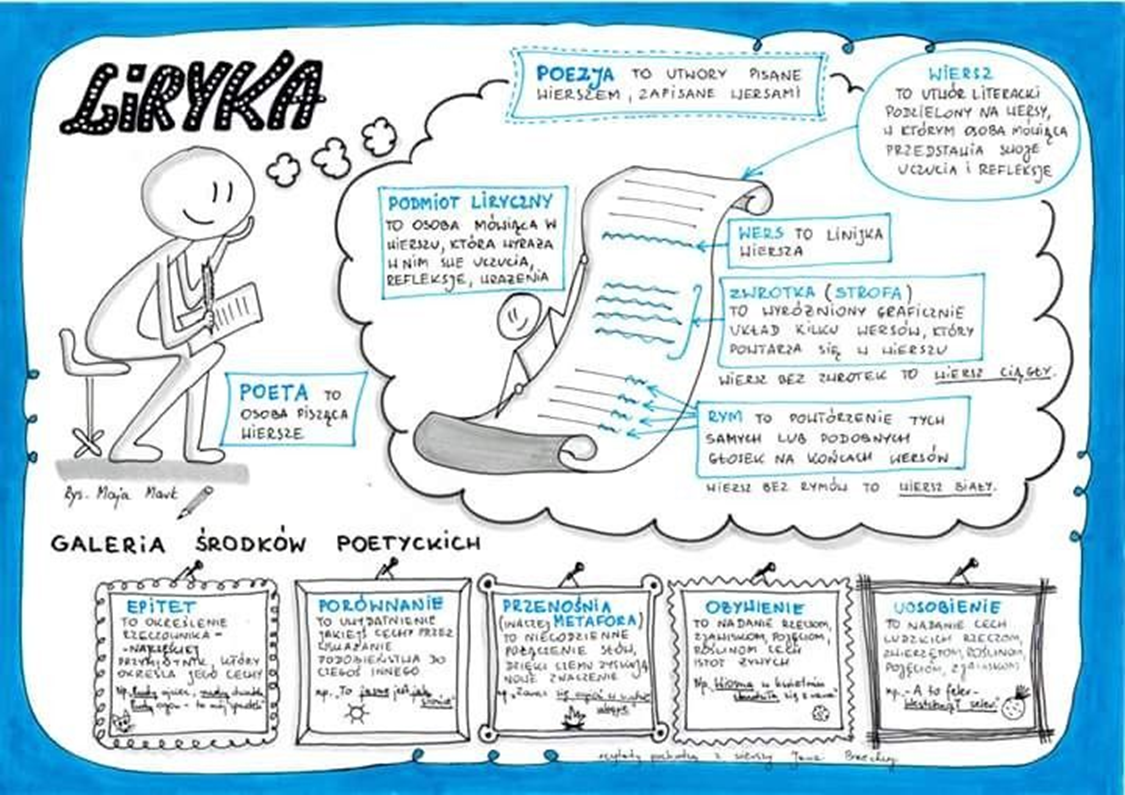 LIRYKA
POEZJA TO UTWORY PISANE
WIERSZEM, ZAPISANE WERSAMI
WIERSZ
TO UTWÓR LITERACKI
PODZIELONY NA WERSY,
W KTÓRYM OSOBA MÓWIĄCA
PRZEDSTAWIA SWOJE
UCZUCIA I REFLEKSJE
PODMIOT LIRYCZNY
TO OSOBA MÓWIĄCA W
WIERSZU, KTÓRA WYRAŻA
W NIM SWE UCZUCIA,
REFLEKSJE, WRAŻENIA
WERS TO LINIJKA
WIERSZA
ZWROTKA (STROFA)
TO WYRÓŻNIONY GRAFICZNIE
UKŁAD KILKU WERSÓW, KTÓRY
POWTARZA SIĘ W WIERSZU
WIERSZ BEZ ZWROTEK TO WIERSZ CIĄGŁY.
RYM TO POWTÓRZENIE TYCH
SAMYCH LUB PODOBNYCH
GŁOSEK NA KOŃCACH WERSÓW
WIERSZ BEZ RYMÓW TO WIERSZ BIAŁY.
POETA TO
OSOBA PISZĄCA
WIERSZE
Rys. Maja Mawk
GALERIA ŚRODKÓW POETYCKICH
EPITET
TO OKREŚLENIE
RZECZOWNIKA -
- NAJCZĘŚCIEJ
PRZYMIOTNIK, KTÓRY
OKREŚLA JEGO CECHY
Np. Rudy ojciec, rudy dziadek
Rudy ogon - to mój spadek
PORÓWNANIE
TO UWYDATNIENIE
JAKIEJŚ CECHY PRZEZ
WSKAZANIE
PODOBIEŃSTWA DO
CZEGOŚ INNEGO
np. "To jasne jest jak
słońce"
PRZENOŚNIA
(INACZEJ METAFORA)
TO NIECODZIENNE
POŁĄCZENIE SŁÓW,
DZIĘKI CZEMU ZYSKUJĄ
NOWE ZNACZENIE
np. się
OŻYWIENIE
TO NADANIE RZECZOM,
ZJAWISKOM, POJĘCIOM,
ROŚLINOM CECH
ISTOT ŻYWYCH
Np. Wiosna w kwietniu
się z rana"
UOSOBIENIE
TO NADANIE CECH
LUDZKICH RZECZOM,
ZWIERZĘTOM, ROŚLINOM,
POJĘCIOM, ZJAWISKOM
np. - A to feler -
Westchnął seler."
cytaty pochodzą z wierszy Jana Brzechwy